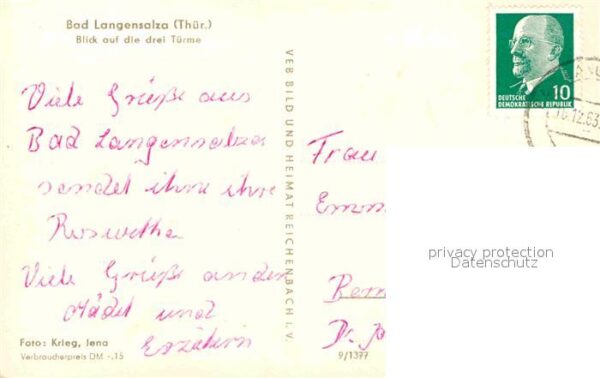 Bad Langensalza (Thür.)
Blick auf die drei Türme
Viele Grüße aus
Bad Langensalza
sendet ihre ihre
Roswetha
Viele Grüße an den
Mädel und
Erzäherin
Foto: Krieg, Jena
Verbraucherpreis DM -,15
VEB BILD UND HEIMAT REICHENBACH I. V.
DEUTSCHE
DEMOKRATISCHE REPUBLIK
10
12.63
Frau
Emm
privacy protection
Datenschutz
Bern
Dr.
9/1377